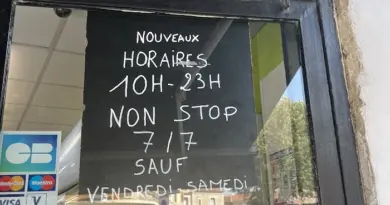 NOUVEAUX
HORAIRES
10H-23H
NON STOP
7/7
SAUF
VENDREDI-SAMEDI
CB
MasterCard Maestro
VISA V